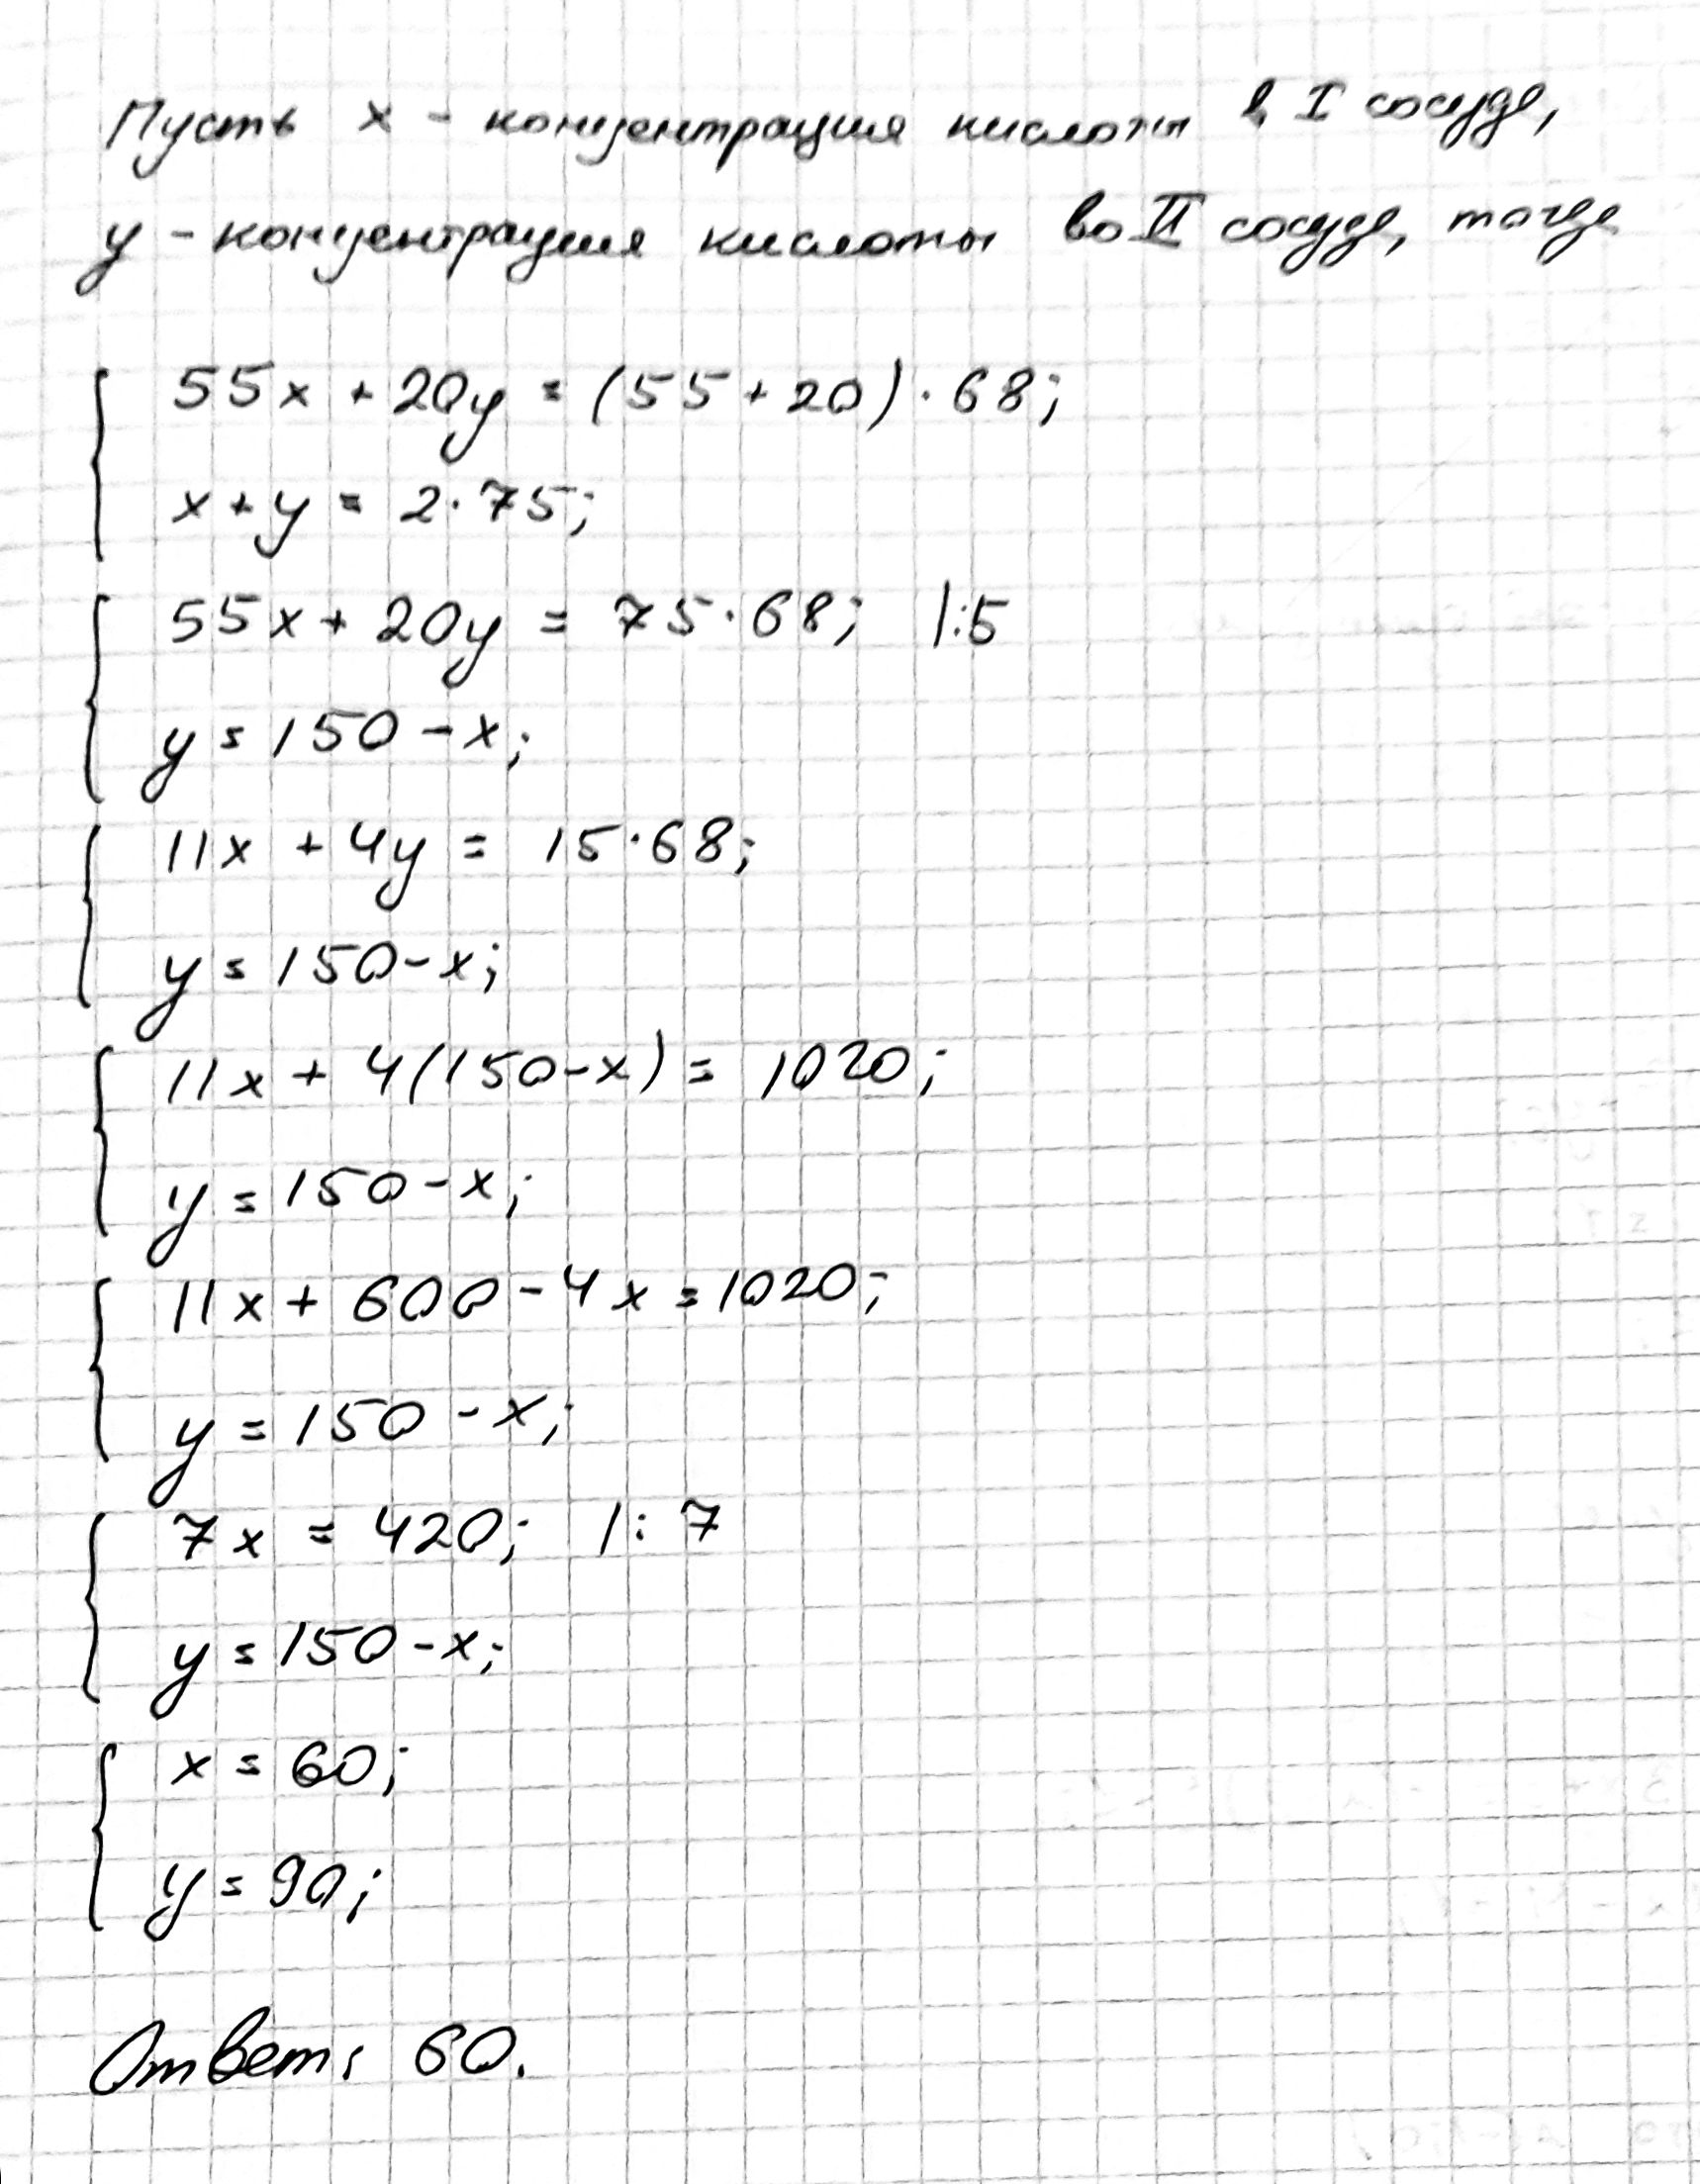 Пусть x - концентрация кислоты в I сосуде,
y - концентрация кислоты во II сосуде, тогда
55x + 20y = (55 + 20) · 68;
x + y = 2 · 75;
55x + 20y = 75 · 68; |:5
y = 150 - x;
11x + 4y = 15 · 68;
y = 150 - x;
11x + 4(150 - x) = 1020;
y = 150 - x;
11x + 600 - 4x = 1020;
y = 150 - x;
7x = 420; |: 7
y = 150 - x;
x = 60;
y = 90;
Ответ: 60.